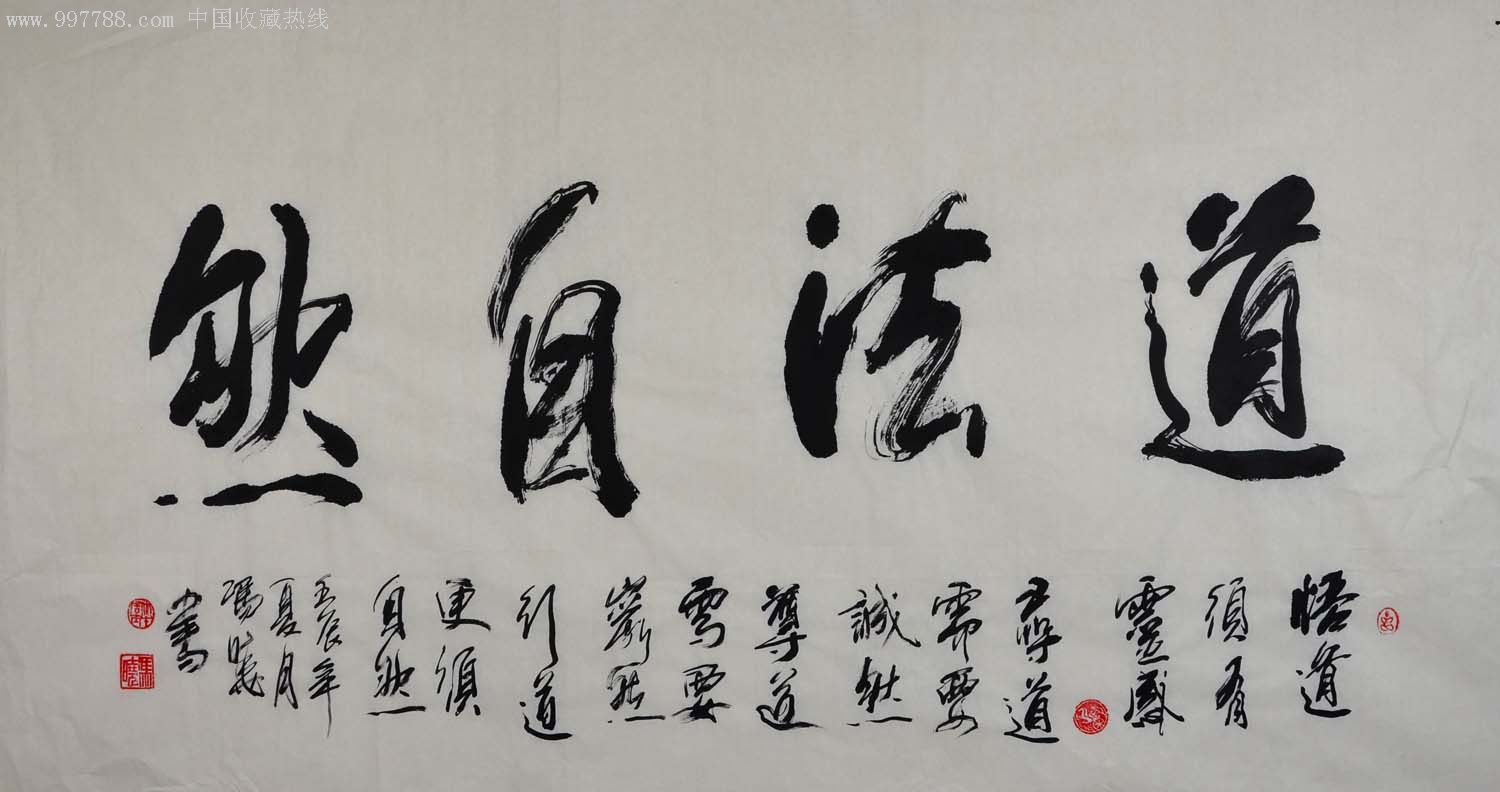 www.997788.com 中国收藏热线
道法自然
悟道
須有
靈感
道
需要
誠然
尊道
需要
嚴然
行道
更須
自然
壬辰年
夏月
馮曉
書